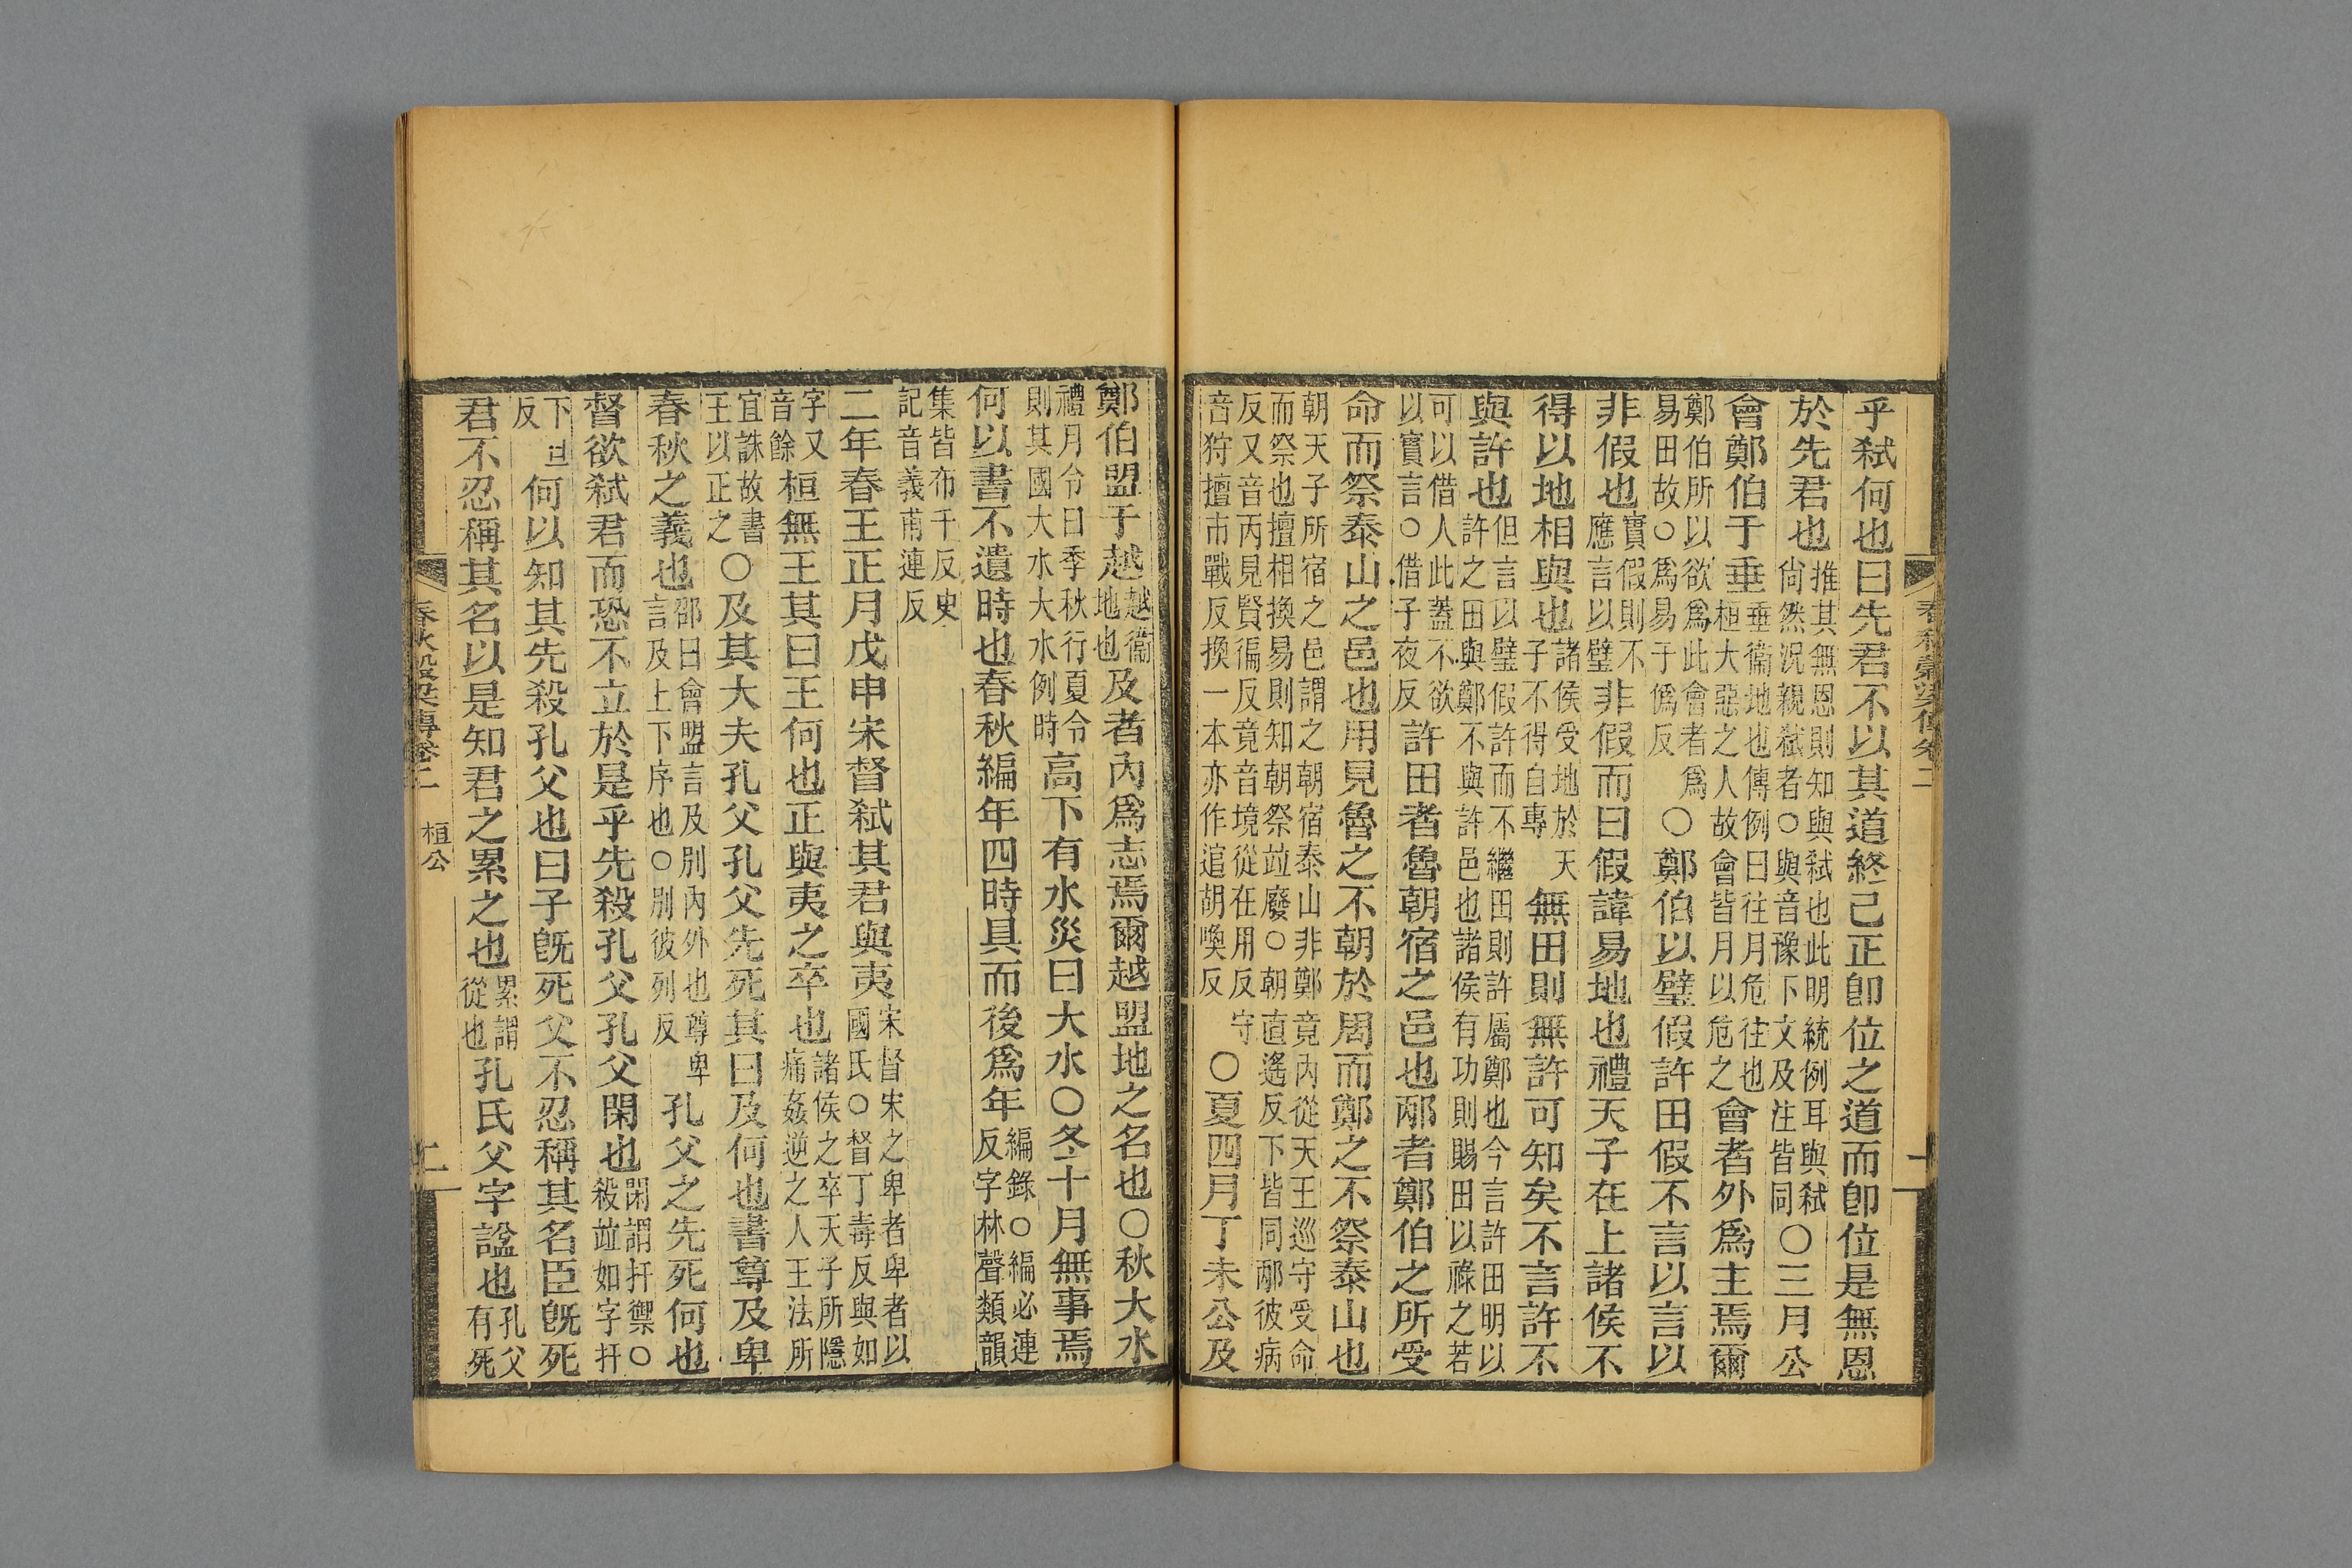 春秋穀梁傳卷二
乎弑何也曰先君不以其道終己正卽位之道而卽位是無恩
於先君也推其無恩則知與弑也此明統例耳與弑尙然況親弑者○與音豫下文及注皆同○三月公
會鄭伯于垂垂衞地也傳例曰往月危往也桓大惡之人故會皆月以危之會者外爲主焉爾
鄭伯所以欲爲此會者爲易田故○爲易于僞反○鄭伯以璧假許田假不言以言以
非假也實假則不應言以璧非假而曰假諱易地也禮天子在上諸侯不
得以地相與也諸侯受地於天子不得自專無田則無許可知矣不言許不
與許也但言以璧假許而不繼田則許屬鄭也今言許田明以許之田與鄭不與許邑也諸侯有功則賜田以祿之若
可以借人此蓋不欲以實言○借子夜反許田者魯朝宿之邑也邴者鄭伯之所受
命而祭泰山之邑也用見魯之不朝於周而鄭之不祭泰山也
朝天子所宿之邑謂之朝宿泰山非鄭竟內從天王巡守受命而祭也擅相換易則知朝祭竝廢○朝直遙反下皆同邴彼病
反又音丙見賢徧反竟音境從在用反守音狩擅市戰反換一本亦作逭胡喚反○夏四月丁未公及
鄭伯盟于越越衞地也及者內爲志焉爾越盟地之名也○秋大水
禮月令曰季秋行夏令則其國大水大水例時高下有水災曰大水○冬十月無事焉
何以書不遺時也春秋編年四時具而後爲年編錄○編必連反字林聲類韻
集皆布千反史記音義甫連反
二年春王正月戊申宋督弑其君與夷宋督宋之卑者卑者以國氏○督丁毒反與如
字又音餘桓無王其曰王何也正與夷之卒也諸侯之卒天子所隱痛姦逆之人王法所
宜誅故書王以正之○及其大夫孔父孔父先死其曰及何也書尊及卑
春秋之義也邵曰會盟言及別內外也尊卑言及上下序也○別彼列反孔父之先死何也
督欲弑君而恐不立於是乎先殺孔父孔父閑也閑謂扞禦○殺竝如字扞
下旦反何以知其先殺孔父也曰子旣死父不忍稱其名臣旣死
君不忍稱其名以是知君之累之也累謂從也孔氏父字諡也孔父有死
春秋穀梁傳卷二 桓公 二